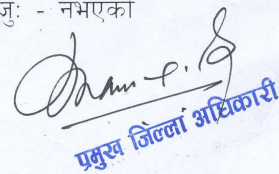 जुः - नभएको
प्रमुख जिल्ला अधिकारी